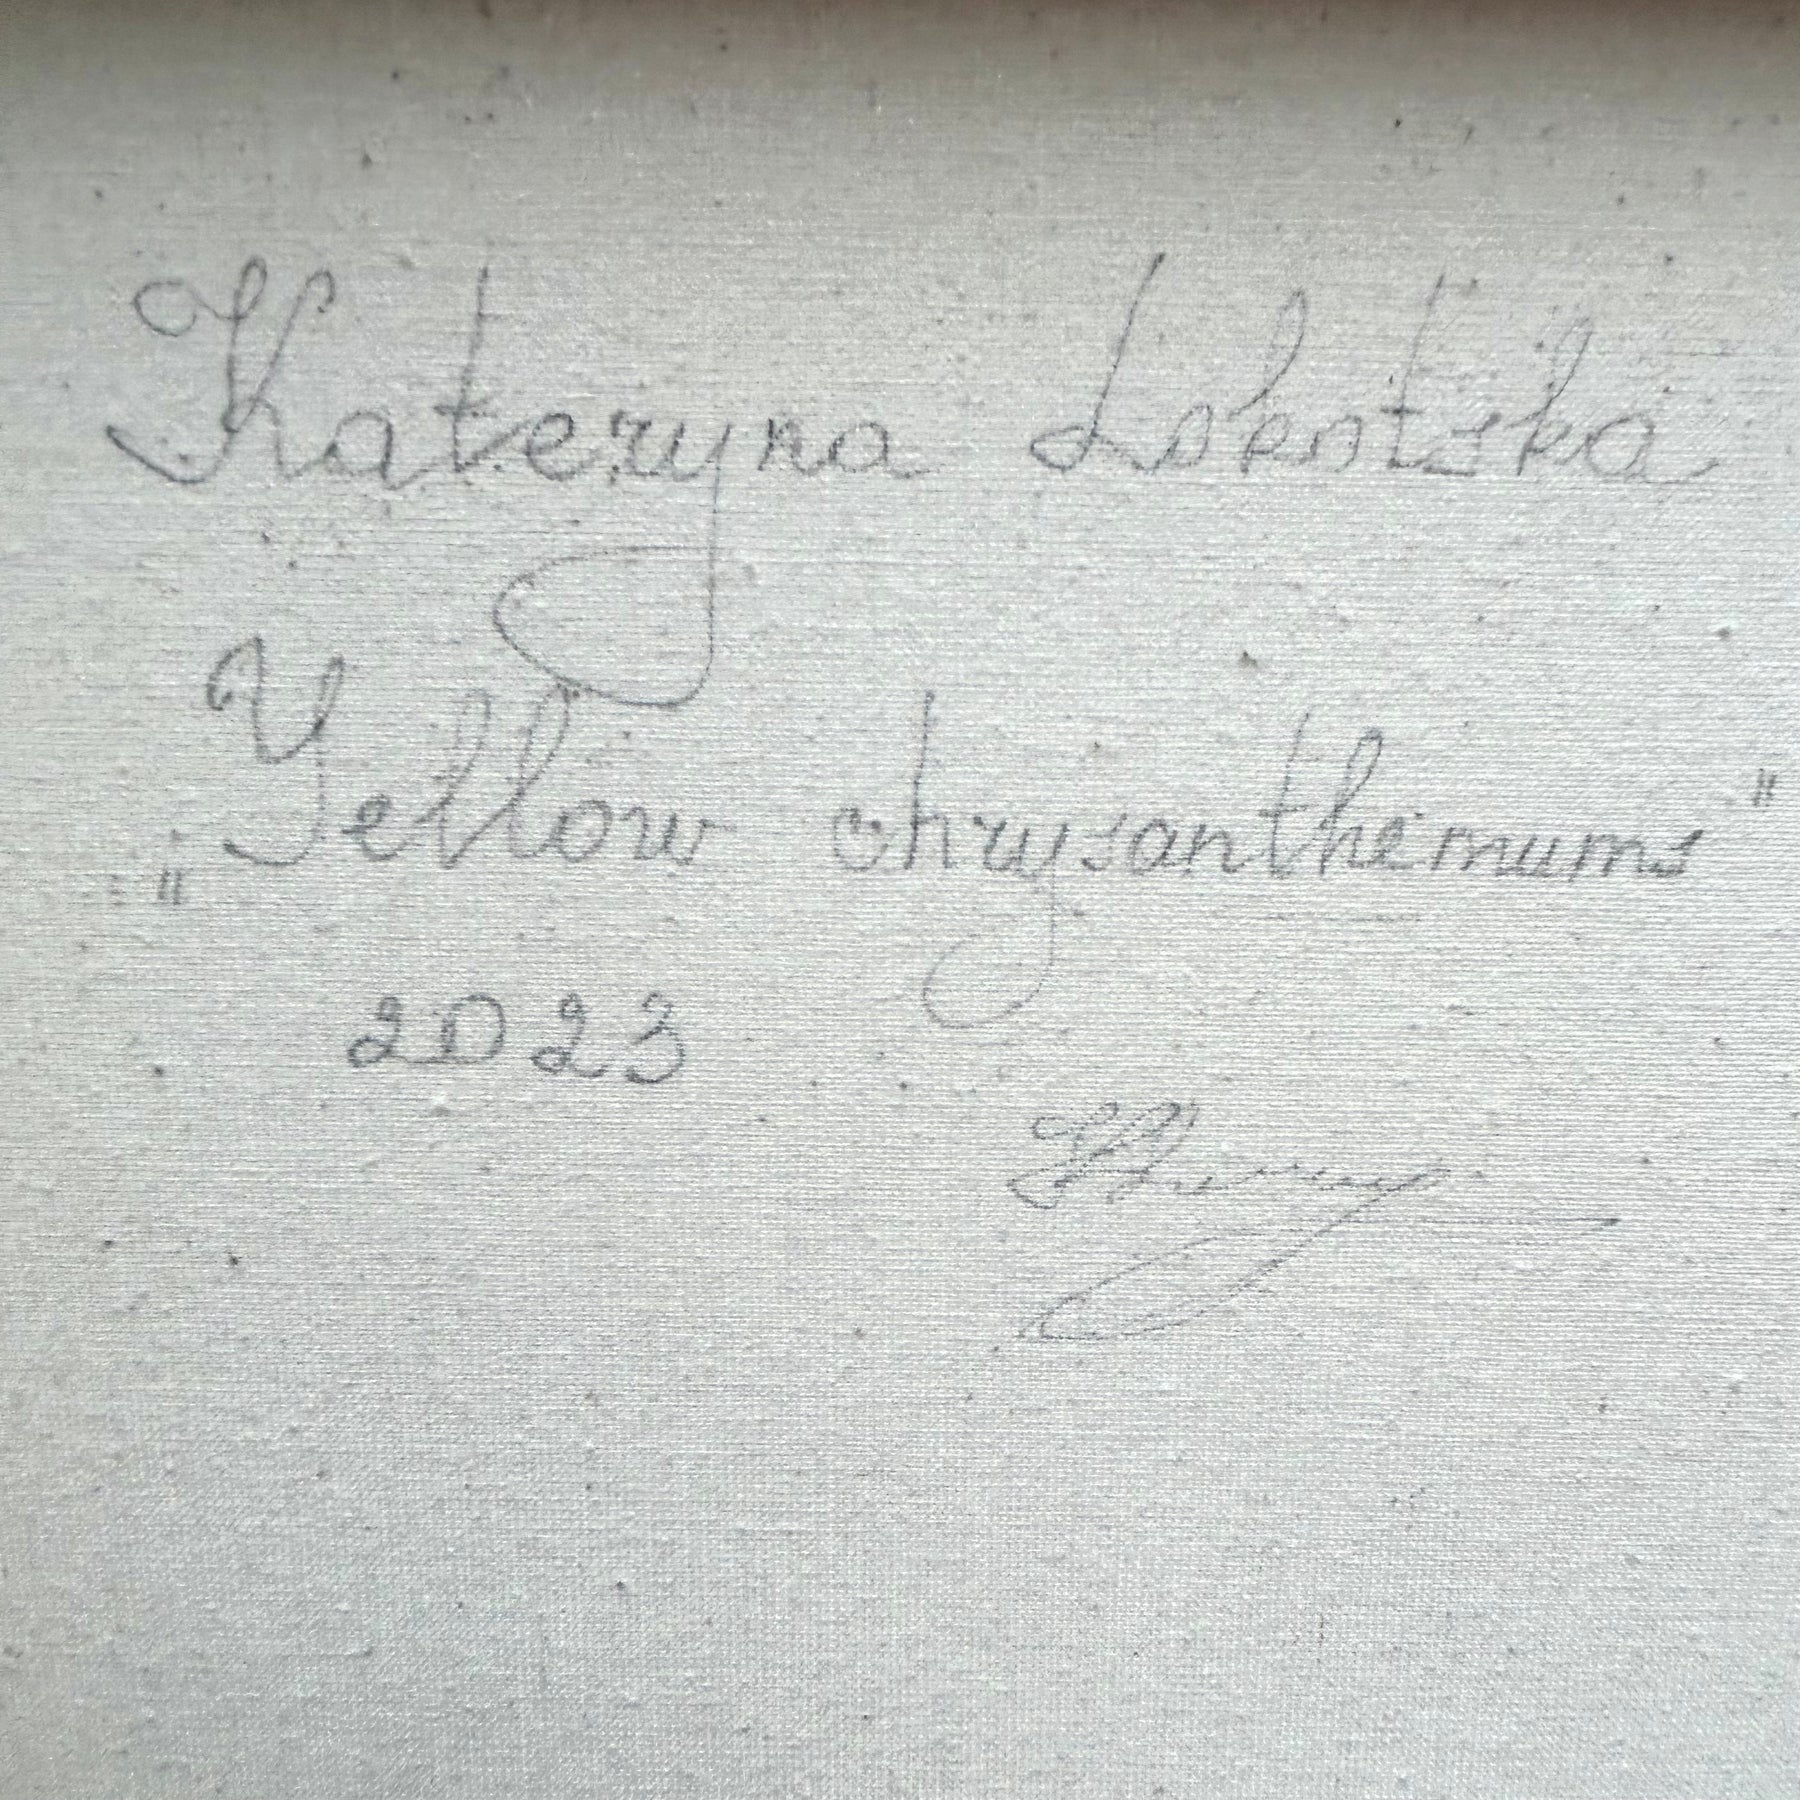 Kateryna Lokotska
"Yellow chrysanthemums"
2023